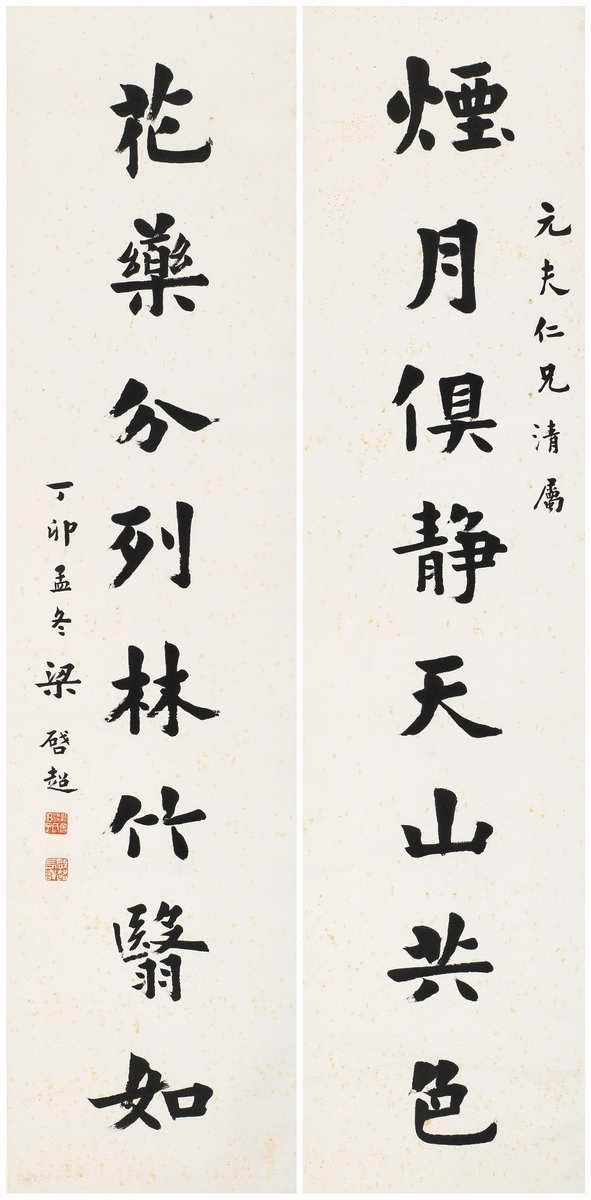 元夫仁兄清屬
煙月俱靜天山共色
花藥分列林竹翳如
丁卯孟冬梁啓超